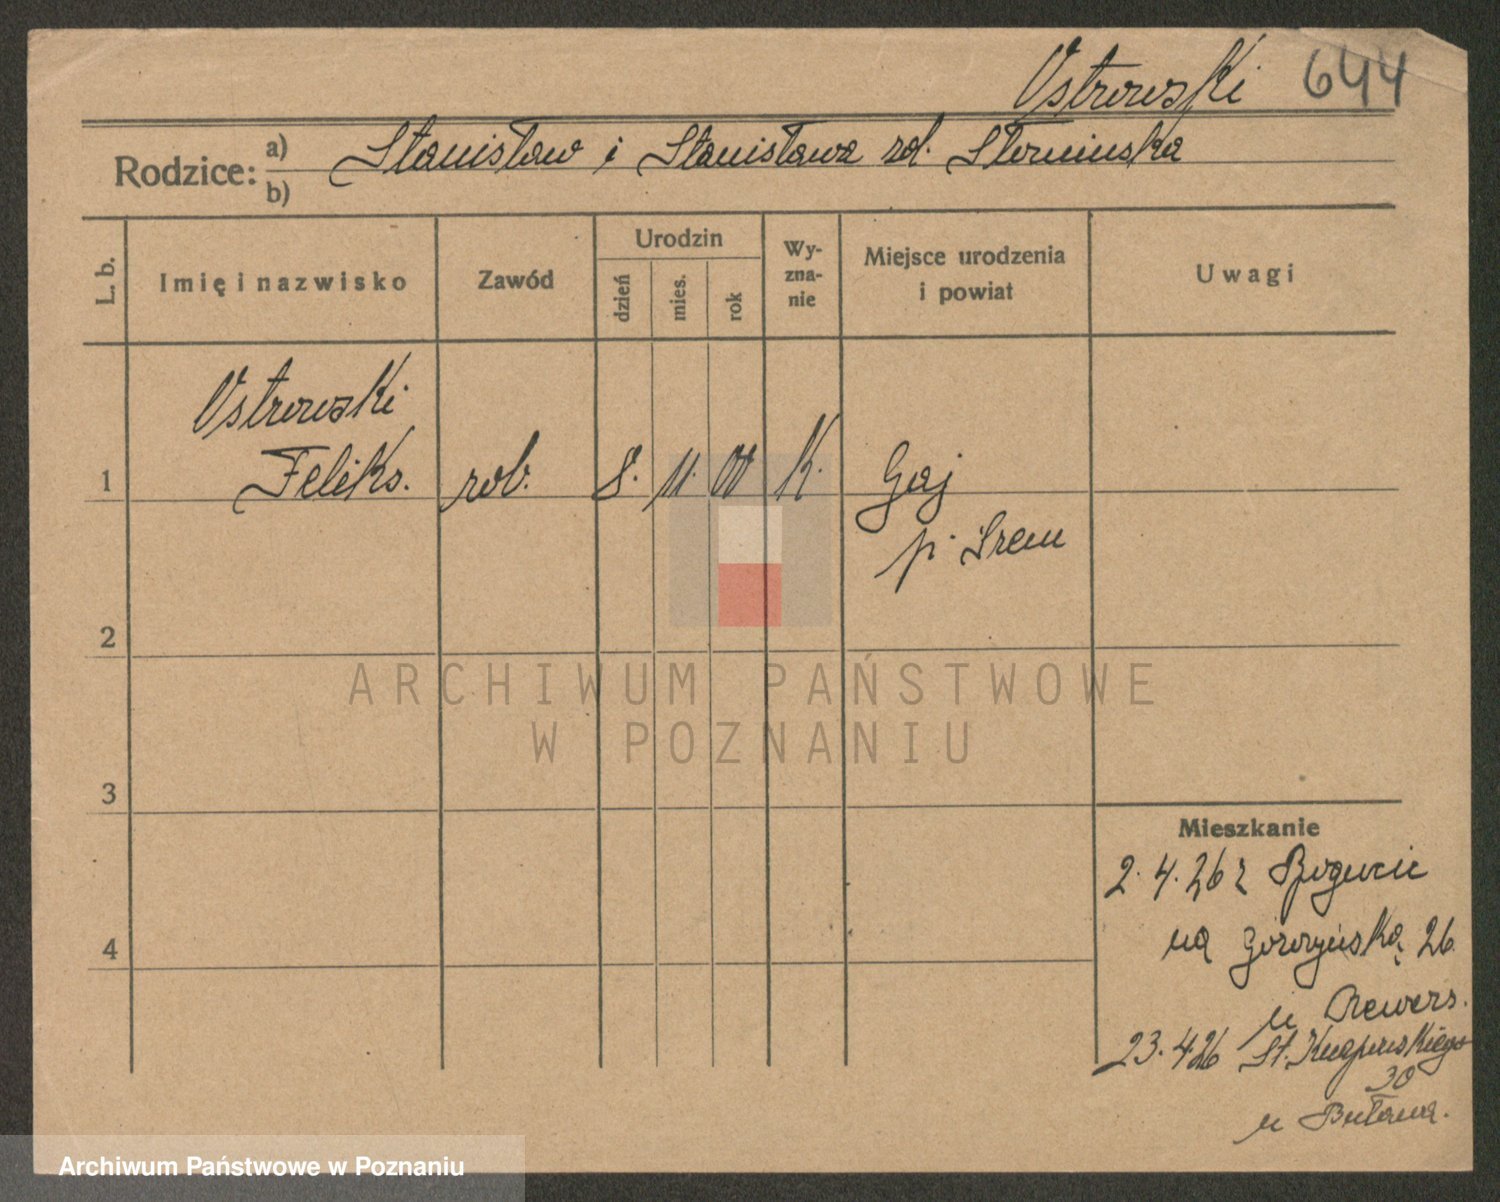 Ostrowski 644
Rodzice: a) Stanisław i Stanisława zd. Słomińska
b)
L. b. Imię i nazwisko Zawód Urodzin dzień mies. rok Wy-zna-nie Miejsce urodzenia i powiat Uwagi
Ostrowski
1 Feliks. rob. 8. 11. 00 k. Gaj
p. Śrem
2
ARCHIWUM PAŃSTWOWE
W POZNANIU
3
Mieszkanie
2. 4. 26 z
4 na Górczyńską 26
u
23. 4 26 St. Knapowskiego
30
u
Archiwum Państwowe w Poznaniu